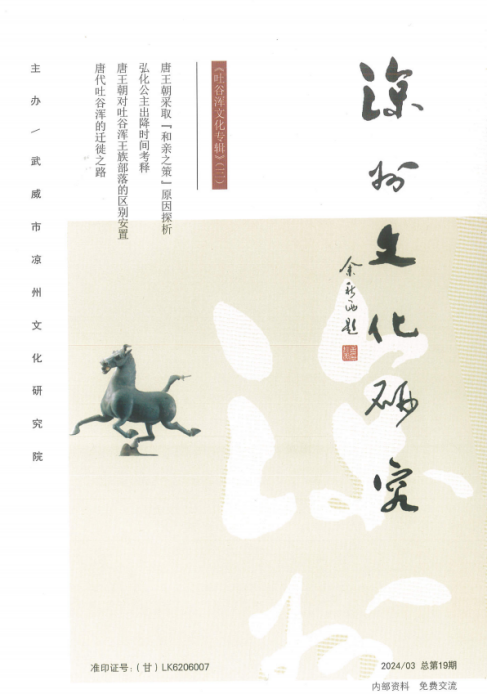 凉州文化研究
余秋雨题
《吐谷浑文化专辑》(三)
唐王朝采取“和亲之策”原因探析
弘化公主出降时间考释
唐王朝对吐谷浑王族部落的区别安置
唐代吐谷浑的迁徙之路
主办/武威市凉州文化研究院
凉州
准印证号:(甘)LK6206007
2024/03 总第19期
内部资料 免费交流